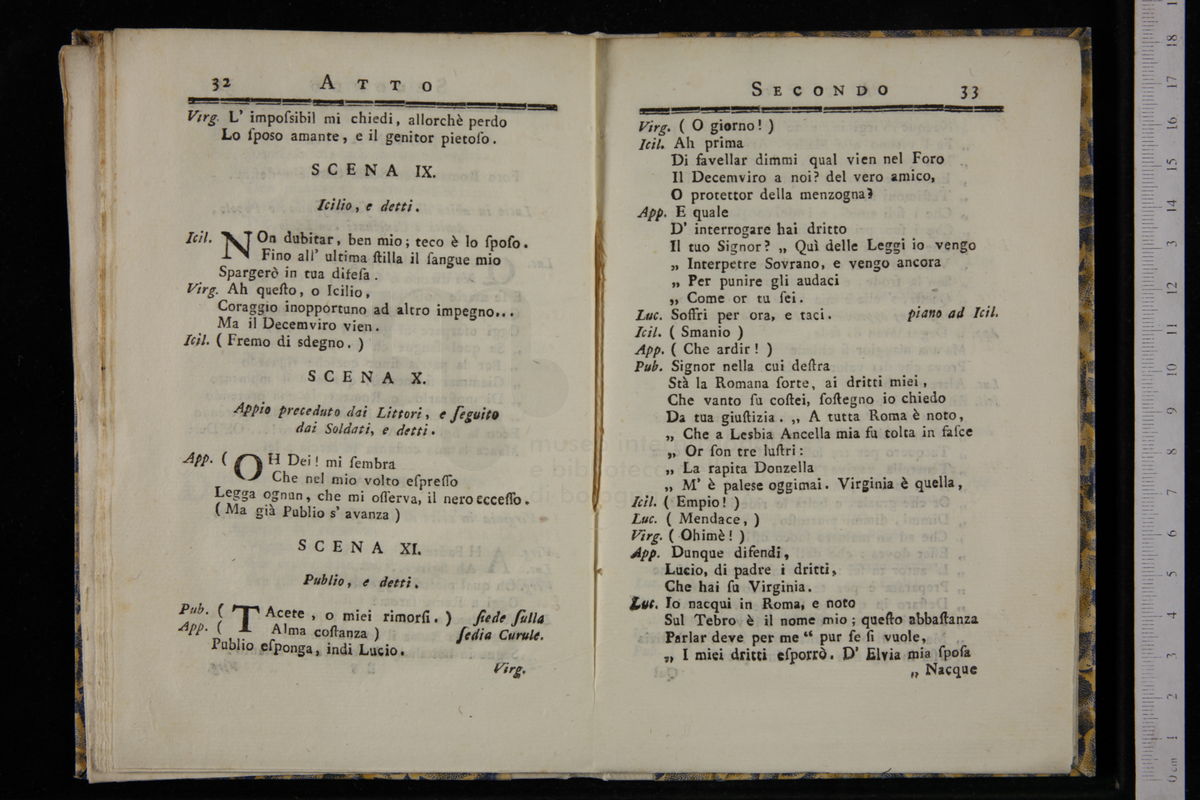 32 ATTO
Virg. L' impoſsibil mi chiedi, allorchè perdo
Lo ſposo amante, e il genitor pietoſo.
SCENA IX.
Icilio, e detti.
Icil. NOn dubitar, ben mio; teco è lo ſpoſo.
Fino all' ultima ſtilla il ſangue mio
Spargerò in tua difeſa.
Virg. Ah queſto, o Icilio,
Coraggio inopportuno ad altro impegno...
Ma il Decemviro vien.
Icil. ( Fremo di sdegno. )
SCENA X.
Appio preceduto dai Littori, e ſeguito
dai Soldati, e detti.
App. ( OH Dei! mi ſembra
Che nel mio volto eſpreſſo
Legga ognun, che mi oſſerva, il nero ecceſſo.
( Ma già Publio s' avanza )
SCENA XI.
Publio, e detti.
Pub. ( TAcete, o miei rimorſi. ) ſiede ſulla
App. ( Alma coſtanza ) ſedia Curule.
Publio eſponga, indi Lucio.
Virg.
SECONDO 33
Virg. ( O giorno! )
Icil. Ah prima
Di favellar dimmi qual vien nel Foro
Il Decemviro a noi? del vero amico,
O protettor della menzogna?
App. E quale
D' interrogare hai dritto
Il tuo Signor? „ Quì delle Leggi io vengo
„ Interpetre Sovrano, e vengo ancora
„ Per punire gli audaci
„ Come or tu ſei.
Luc. Soffri per ora, e taci. piano ad Icil.
Icil. ( Smanio )
App. ( Che ardir! )
Pub. Signor nella cui deſtra
Stà la Romana ſorte, ai dritti miei,
Che vanto ſu coſtei, ſoſtegno io chiedo
Da tua giuſtizia. „ A tutta Roma è noto,
„ Che a Lesbia Ancella mia fu tolta in faſce
„ Or ſon tre luſtri:
„ La rapita Donzella
„ M' è palese oggimai. Virginia è quella,
Icil. ( Empio! )
Luc. ( Mendace, )
Virg. ( Ohimè! )
App. Dunque difendi,
Lucio, di padre i dritti,
Che hai ſu Virginia.
Luc. Io nacqui in Roma, e noto
Sul Tebro è il nome mio; queſto abbaſtanza
Parlar deve per me “ pur ſe ſi vuole,
„ I miei dritti eſporrò. D' Elvia mia ſpoſa
„ Nacque